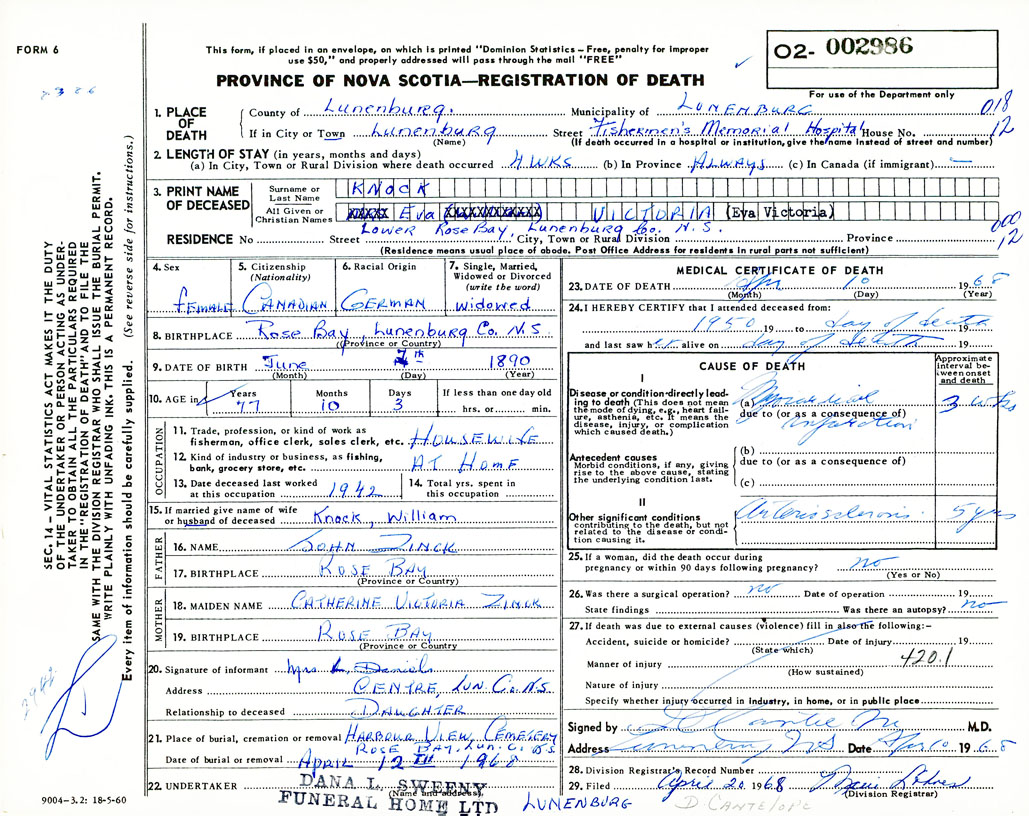 FORM 6
This form, if placed in an envelope, on which is printed "Dominion Statistics – Free, penalty for improper
use $50," and properly addressed will pass through the mail "FREE"
PROVINCE OF NOVA SCOTIA—REGISTRATION OF DEATH
O2- 002986
For use of the Department only
1. PLACE OF DEATH
County of Lunenburg. Municipality of LUNENBURG 018
If in City or Town Lunenburg Street Fishermen's Memorial Hospital House No. 12
(Name) (If death occurred in a hospital or institution, give the name instead of street and number)
2. LENGTH OF STAY (in years, months and days)
(a) In City, Town or Rural Division where death occurred 4 WKS (b) In Province ALWAYS (c) In Canada (if immigrant) —
3. PRINT NAME OF DECEASED
Surname or Last Name KNOCK
All Given or Christian Names XXXXX Eva XXXXXXXXXXXX VICTORIA (Eva Victoria)
Lower Rose Bay, Lunenburg Co. N.S. 000
RESIDENCE No Street City, Town or Rural Division Province 12
(Residence means usual place of abode. Post Office Address for residents in rural parts not sufficient)
4. Sex female
5. Citizenship (Nationality) CANADIAN
6. Racial Origin GERMAN
7. Single, Married, Widowed or Divorced (write the word) widowed
8. BIRTHPLACE Rose Bay, Lunenburg Co. N.S.
(Province or Country)
9. DATE OF BIRTH June 7th 1890
(Month) (Day) (Year)
10. AGE in Years 77 Months 10 Days 3 If less than one day old hrs. or min.
OCCUPATION
11. Trade, profession, or kind of work as
fisherman, office clerk, sales clerk, etc. HOUSEWIFE
12. Kind of industry or business, as fishing,
bank, grocery store, etc. AT HOME
13. Date deceased last worked
at this occupation 1942
14. Total yrs. spent in
this occupation
15. If married give name of wife
or husband of deceased Knock, William
FATHER
16. NAME JOHN ZINCK
17. BIRTHPLACE ROSE BAY
(Province or Country)
MOTHER
18. MAIDEN NAME CATHERINE VICTORIA ZINCK
19. BIRTHPLACE ROSE BAY
(Province or Country
20. Signature of informant Mrs. L. Daniels
Address CENTRE, LUN. Co. N.S.
Relationship to deceased DAUGHTER
21. Place of burial, cremation or removal HARBOUR VIEW CEMETERY
ROSE BAY, LUN. C. N.S.
Date of burial or removal APRIL 12 1968
22. UNDERTAKER DANA L. SWEENY
(Name and address)
FUNERAL HOME LTD LUNENBURG
MEDICAL CERTIFICATE OF DEATH
23. DATE OF DEATH Apr 10 1968
(Month) (Day) (Year)
24. I HEREBY CERTIFY that I attended deceased from:
1950 19 to day of death 19
and last saw her alive on day of death 19
CAUSE OF DEATH
Approximate interval between onset and death
I
Disease or condition directly leading to death (This does not mean the mode of dying, e.g., heart failure, asthenia, etc. It means the disease, injury, or complication which caused death.)
(a) Myocardial 3 wks
due to (or as a consequence of)
infarction
Antecedent causes
Morbid conditions, if any, giving rise to the above cause, stating the underlying condition last.
(b)
due to (or as a consequence of)
(c)
II
Other significant conditions
contributing to the death, but not related to the disease or condition causing it.
Arteriosclerosis 5 yrs
25. If a woman, did the death occur during
pregnancy or within 90 days following pregnancy? no
(Yes or No)
26. Was there a surgical operation? no Date of operation 19
State findings Was there an autopsy? no
27. If death was due to external causes (violence) fill in also the following:–
Accident, suicide or homicide? Date of injury 19
(State which)
Manner of injury 420.1
(How sustained)
Nature of injury
Specify whether injury occurred in Industry, in home, or in public place
Signed by M.D.
Address Lunenburg, N.S. Date Apr 10 1968
28. Division Registrar's Record Number
29. Filed April 20 1968
(Division Registrar)
D CANTELOPE
SEC. 14 – VITAL STATISTICS ACT MAKES IT THE DUTY
OF THE UNDERTAKER OR PERSON ACTING AS UNDER-
TAKER TO OBTAIN ALL THE PARTICULARS REQUIRED
IN THE "REGISTRATION OF DEATH" AND TO FILE THE
SAME WITH THE DIVISION REGISTRAR WHO SHALL ISSUE THE BURIAL PERMIT.
WRITE PLAINLY WITH UNFADING INK. THIS IS A PERMANENT RECORD.
Every item of information should be carefully supplied. (See reverse side for instructions.)
9004–3.2: 18-5-60